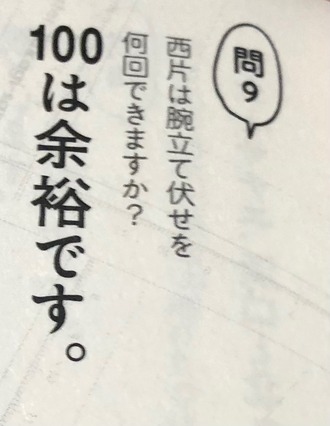 問9
西片は腕立て伏せを
何回できますか？
100は余裕です。